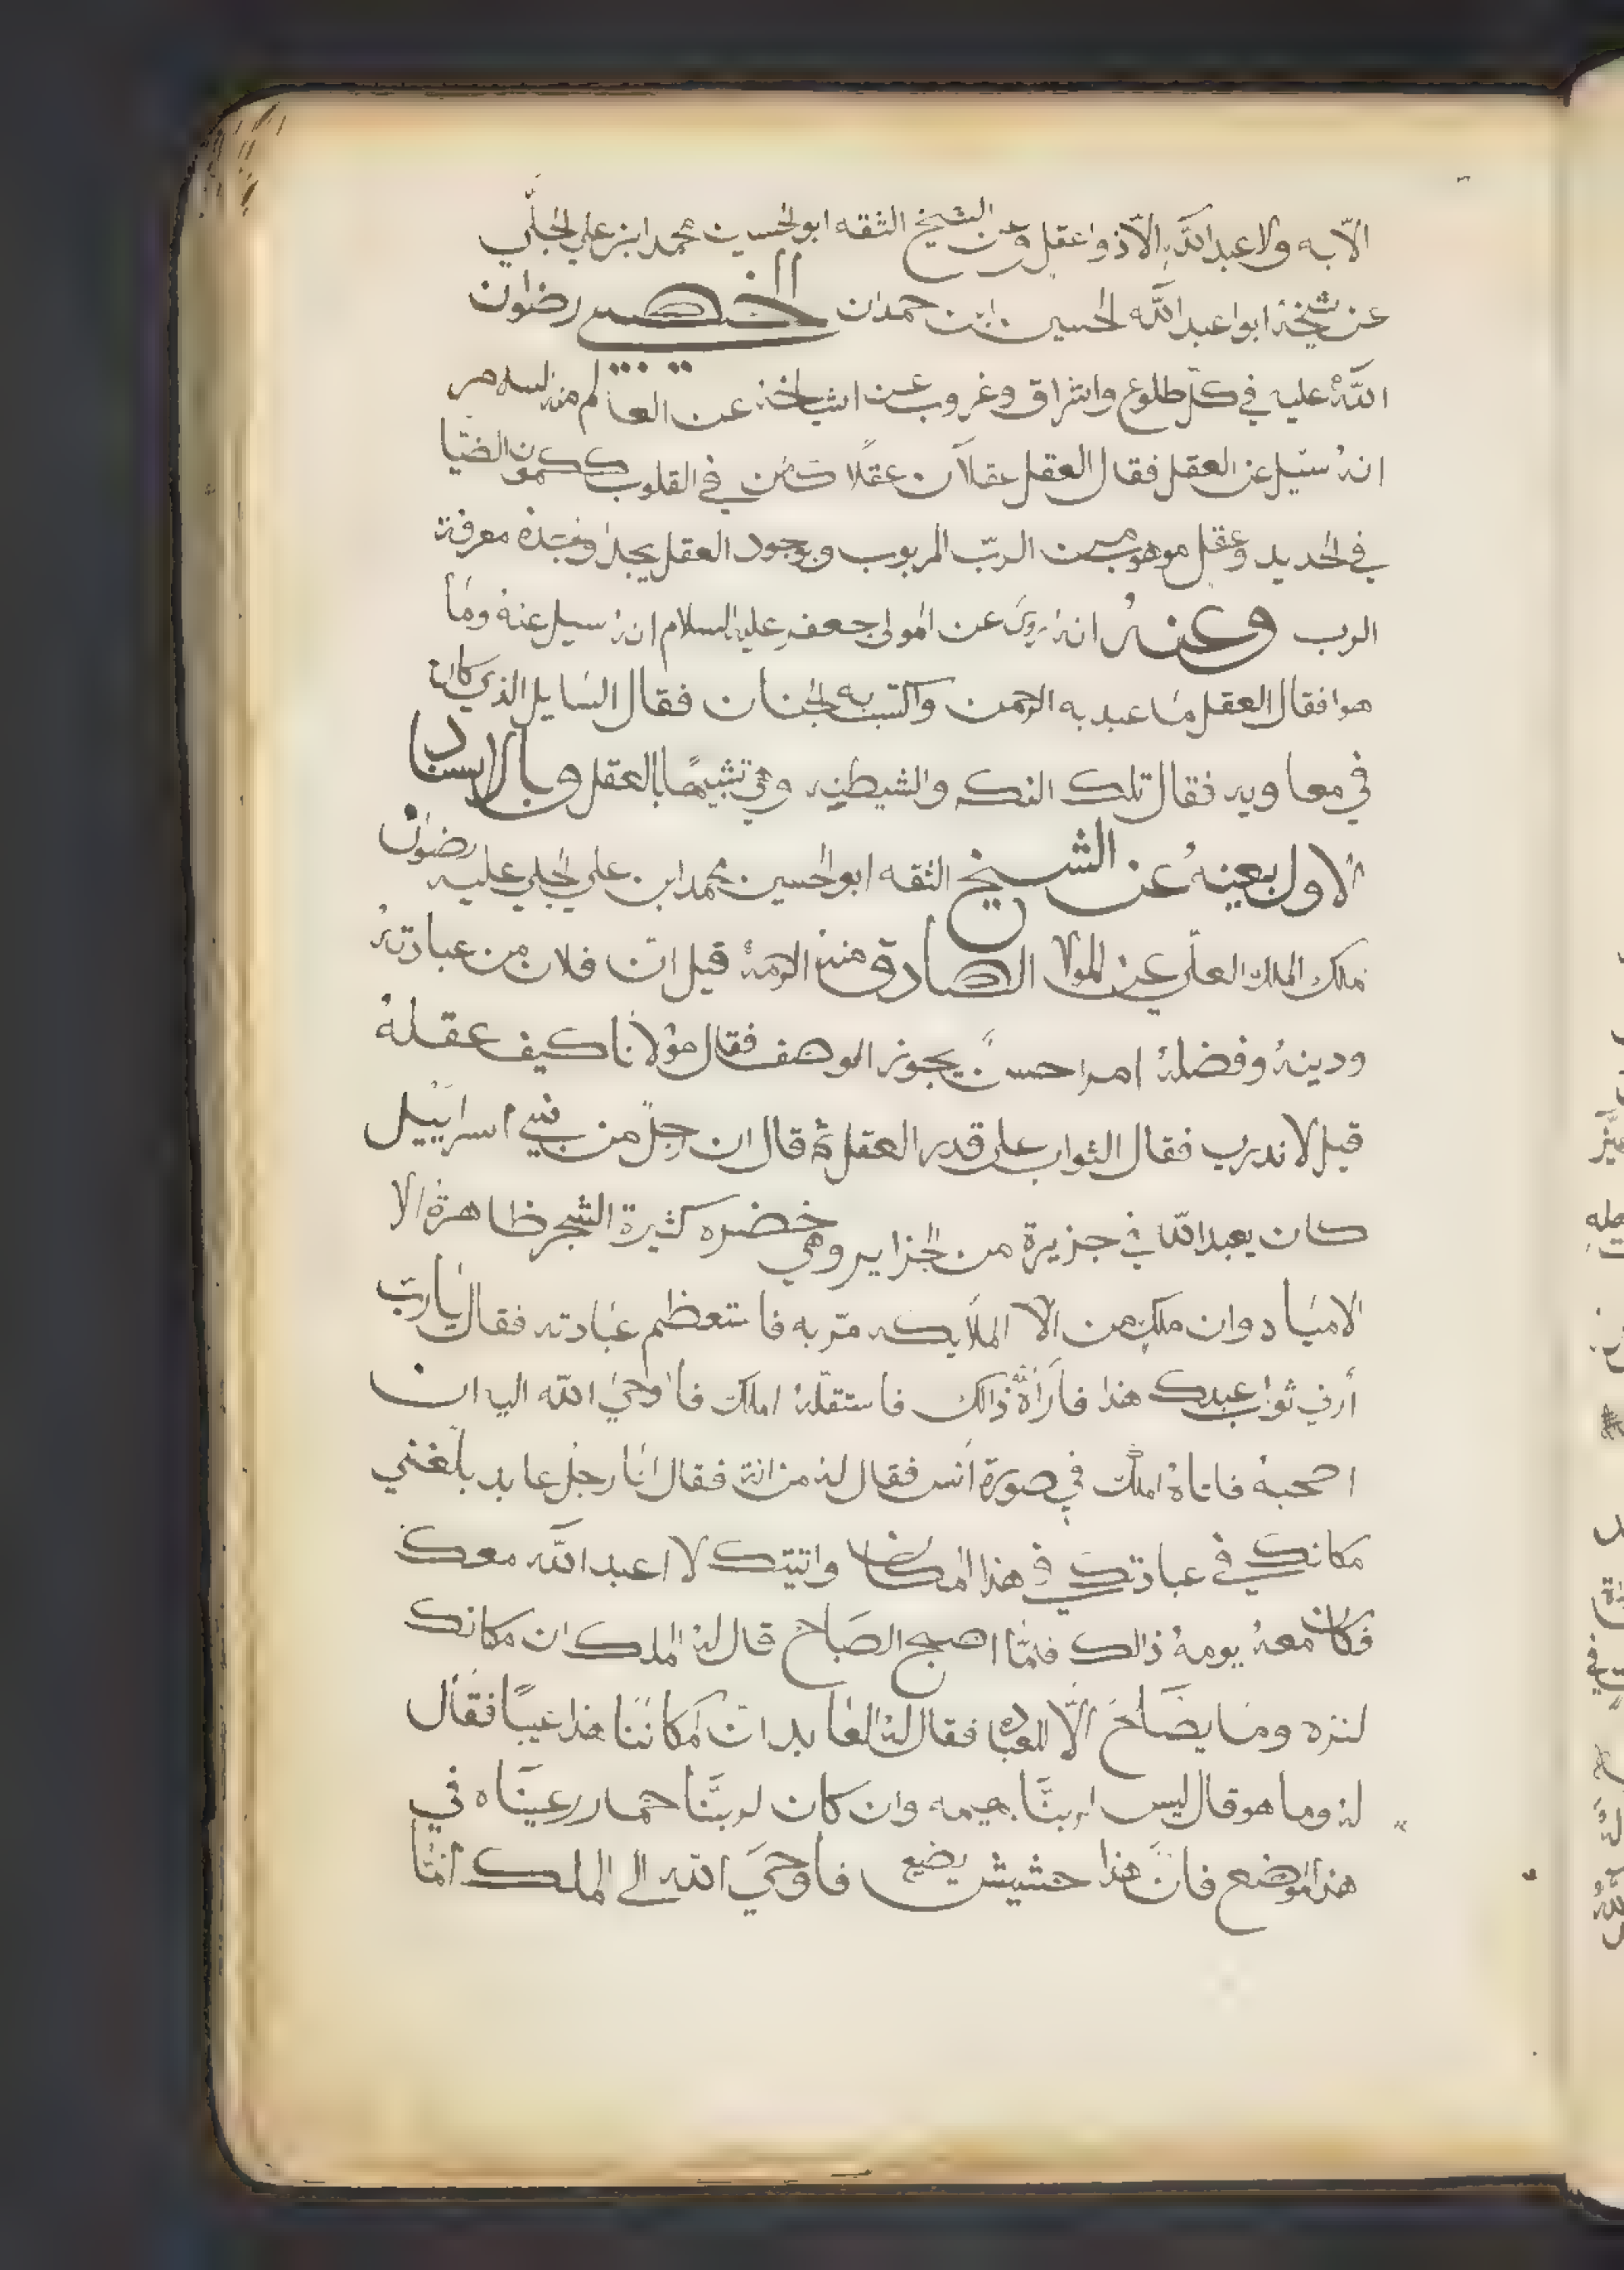 الّا به ولا عبد اللّه الّا ذوا عقل وعن الشيخ الثقه ابو الحسين محمد ابن علي الجلّي
عن شيخة ابوا عبد اللّه الحسين ابن حمدان الخصيبي رضوان
اللّهُ عليه في كلّ طلوع واشراق وغروب عن اشياخة عن العالم منه السلام
انهُ سيّل عن العقل فقال العقل عقلآن عقلًا كامن في القلوب ككمون الضيا
في الحديد وعقل موهوب من الربّ المربوب وبوجود العقل يجد معرفة
الرب وعنهُ انهُ روي عن المولى جعفر عليه السلام انهُ سيل عنهُ وما
هوا فقال العقل ما عبد به الرحمن واكتسب به الجنان فقال السايل الذي كان
في معاويه فقال تلك النكر والشيطنه وهي تشبيهًا بالعقل وبالاسناد
الاول بعينهُ عن الشيخ الثقه ابو الحسين محمد ابن علي الجلي عليه رضوان
ملك الملك العلّي عن المولا الصادق منه الرحمهُ قيل انّ فلان من عبادتهُ
ودينهُ وفضلهُ امرا حسنً يجوز الوصف فقال مؤلانا كيف عقلهُ
قيل لا ندري فقال الثواب على قدر العقل ثم قال ان رجلً من بني اسراييل
كان يعبد اللّه في جزيرة من الجزاير وهي خضره كثيرة الشجر ظاهرة الا
الامياد وان ملكٍ من الآ الملايكه مرّ به فاستعظم عبادته فقال يا ربّ
أرني ثواب عبدك هذا فأراهُ ذالك فاستقلّهُ املك فأوحيَ اللّه اليه ان
اصحبهُ فاتاهُ املك في صورة أنس فقال لهُ من انت فقال انا رجلُ عابد بلّغني
مكانك في عبادتك في هذا المكان واتيتك لا اعبد اللّه معك
فكان معهُ يومهُ ذالك فلمّا اصبح الصباح قال لهُ الملك ان مكانك
لنزه وما يصَلحَ الّا للعباده فقال لهُ العابد انّ لمكاننا هذا عيبًا فقال
لهُ وما هو قال ليس لربنّا بهيمه وان كان لربنّا حمار رعيناه في
هذا الموضع فانّ هذا حشيش يضيع فأوحيَ اللّه الى الملك انمّا